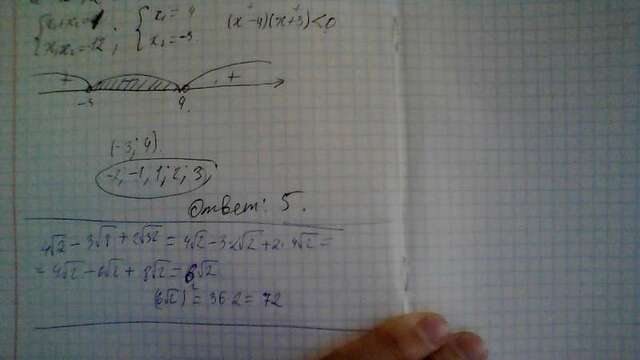 x₁+x₂=1 x₁=4 (x-4)(x+3)<0
x₁x₂=-12; x₂=-3
+ +
-3 4
(-3; 4)
-2; -1, 1; 2; 3;
Ответ: 5.
4√2 - 3√8 + 2√32 = 4√2 - 3·2√2 + 2·4√2 =
= 4√2 - 6√2 + 8√2 = 6√2
(6√2)² = 36·2 = 72